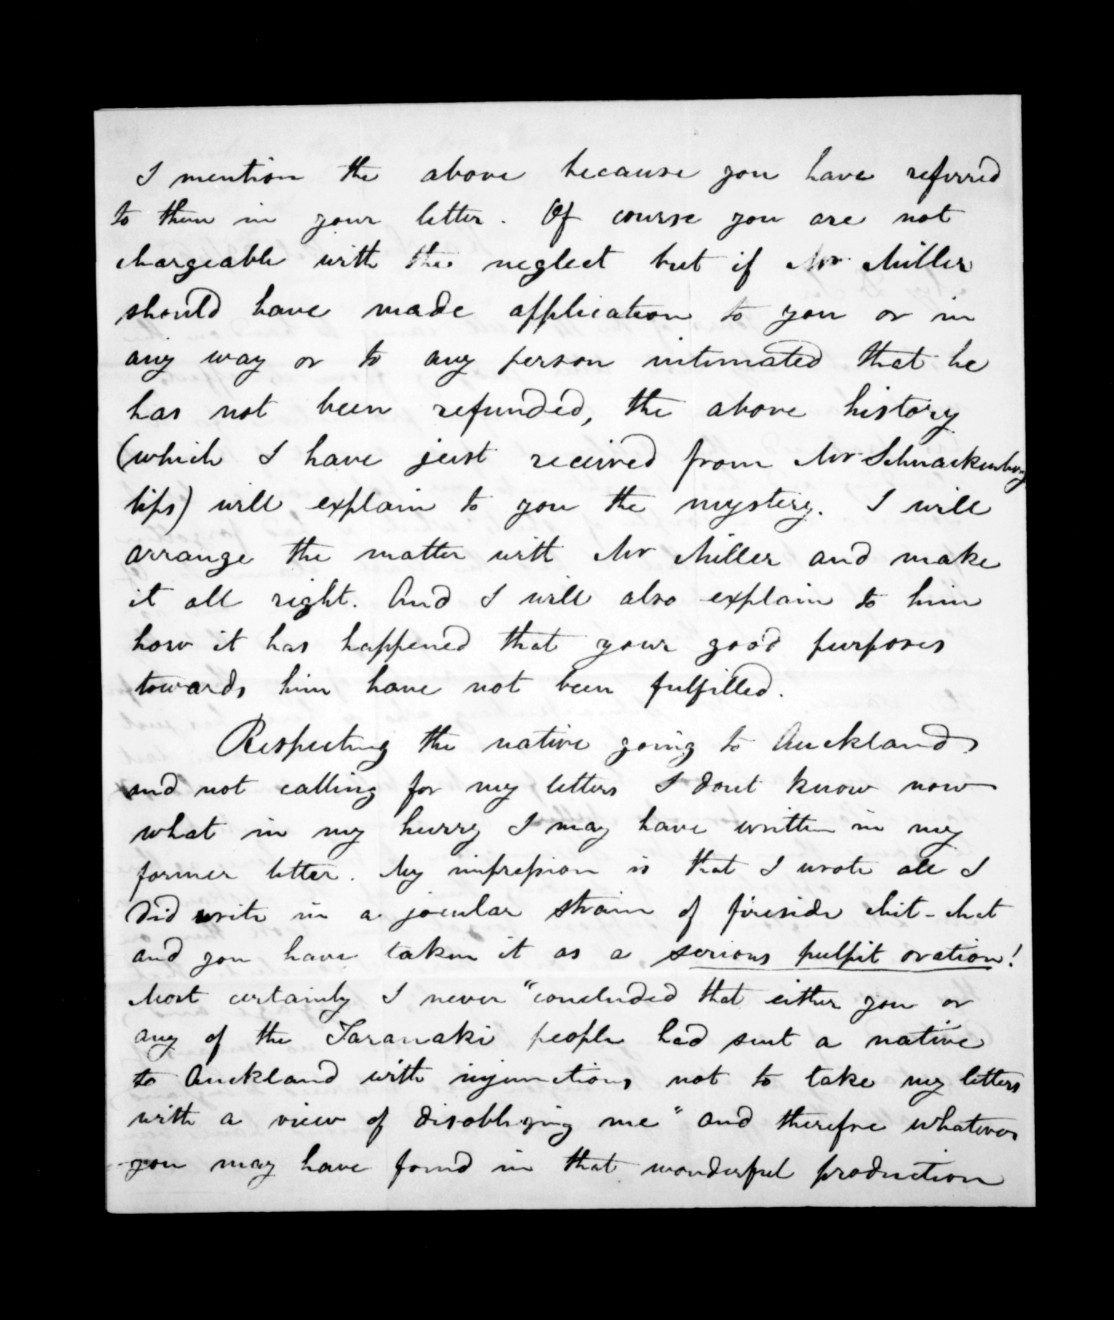 I mention the above because you have referred
to them in your letter. Of course you are not
chargeable with the neglect but if Mr Miller
should have made application to you or in
any way or to any person intimated that he
has not been refunded, the above history
(which I have just received from Mr Schnackenberg
lips) will explain to you the mystery. I will
arrange the matter with Mr Miller and make
it all right. And I will also explain to him
how it has happened that your good purposes
towards him have not been fulfilled.
Respecting the native going to Auckland
and not calling for my letters I dont know now
what in my hurry I may have written in my
former letter. My impression is that I wrote all I
did write in a jocular strain of fireside chit-chat
and you have taken it as a serious pulpit oration!
Most certainly I never "concluded that either you or
any of the Taranaki people had sent a native
to Auckland with injunctions not to take my letters
with a view of disobliging me" and therefore whatever
you may have found in that wonderful production